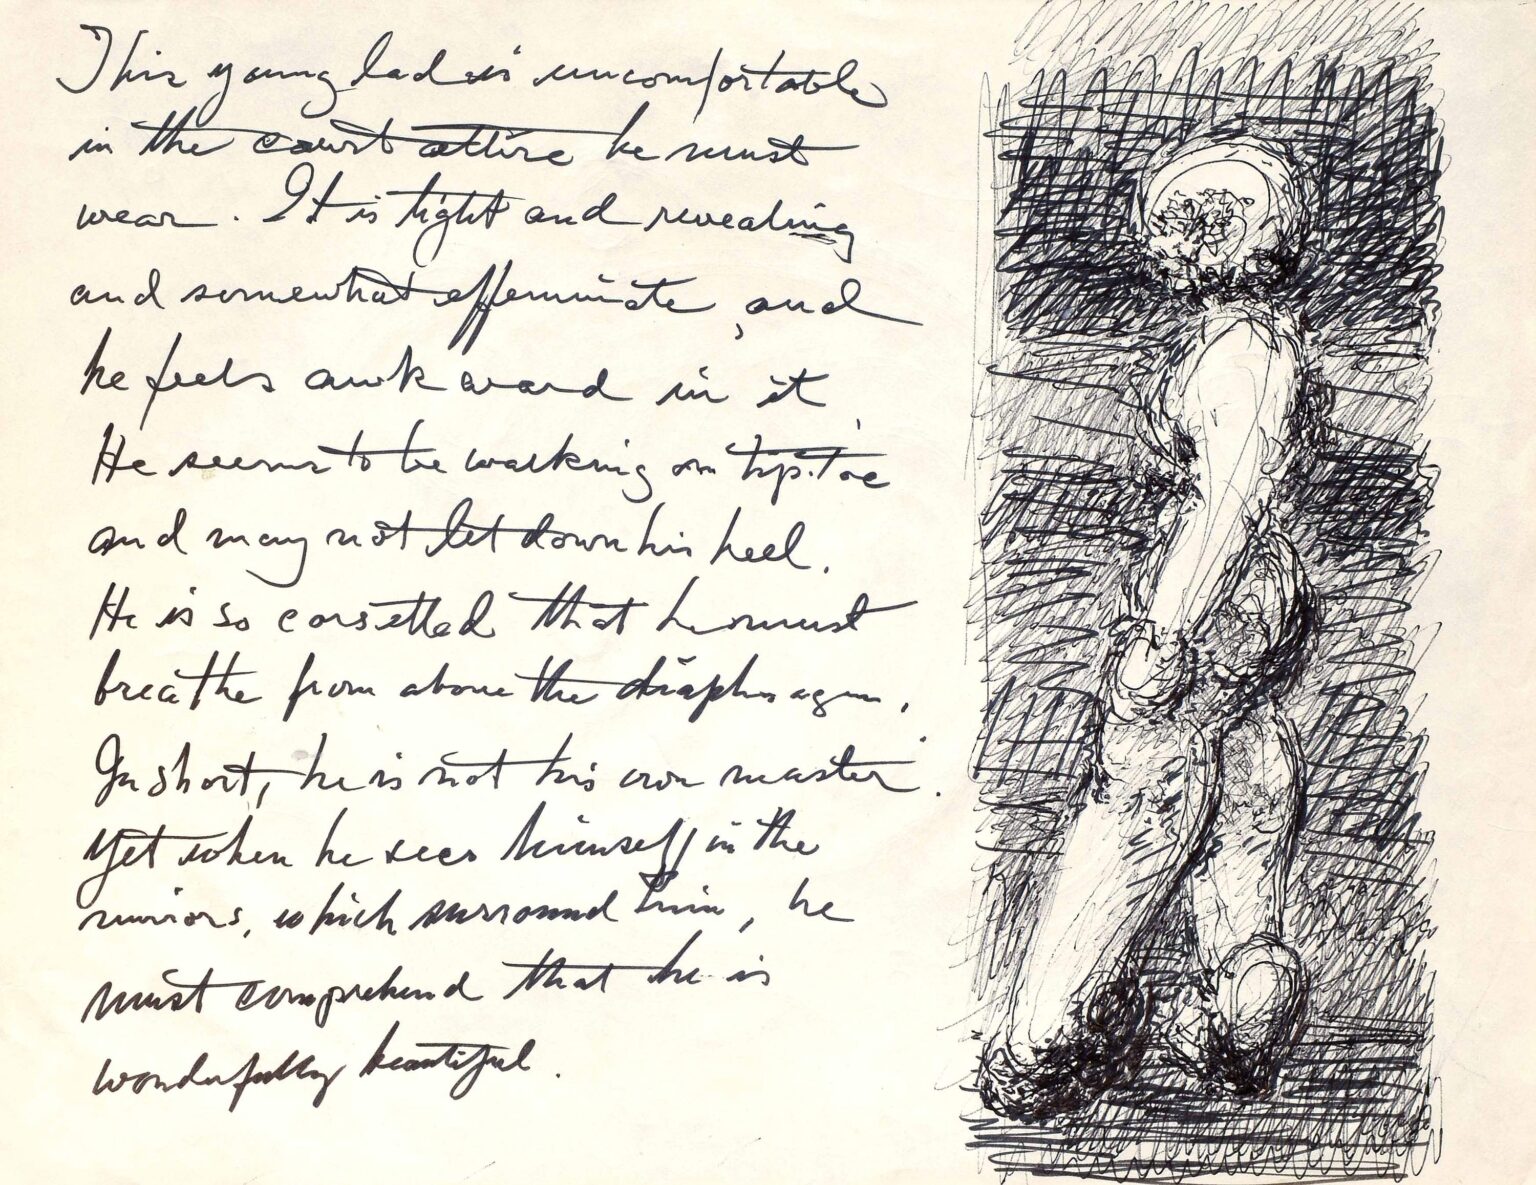 This young lad is uncomfortable
in the court attire he must
wear. It is tight and revealing
and somewhat effeminate, and
he feels awkward in it.
He seems to be walking on tip-toe
and may not let down his heel.
He is so corsetted that he must
breathe from above the diaphragm.
In short, he is not his own master.
Yet when he sees himself in the
mirrors, which surround him, he
must comprehend that he is
wonderfully beautiful.